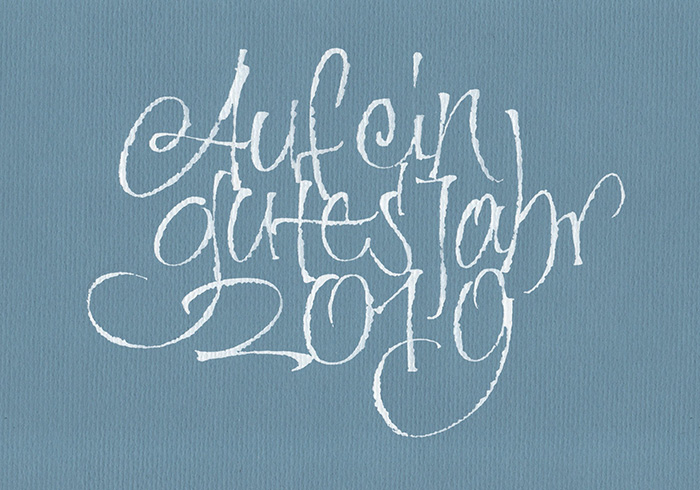 Auf ein
gutes Jahr
2019